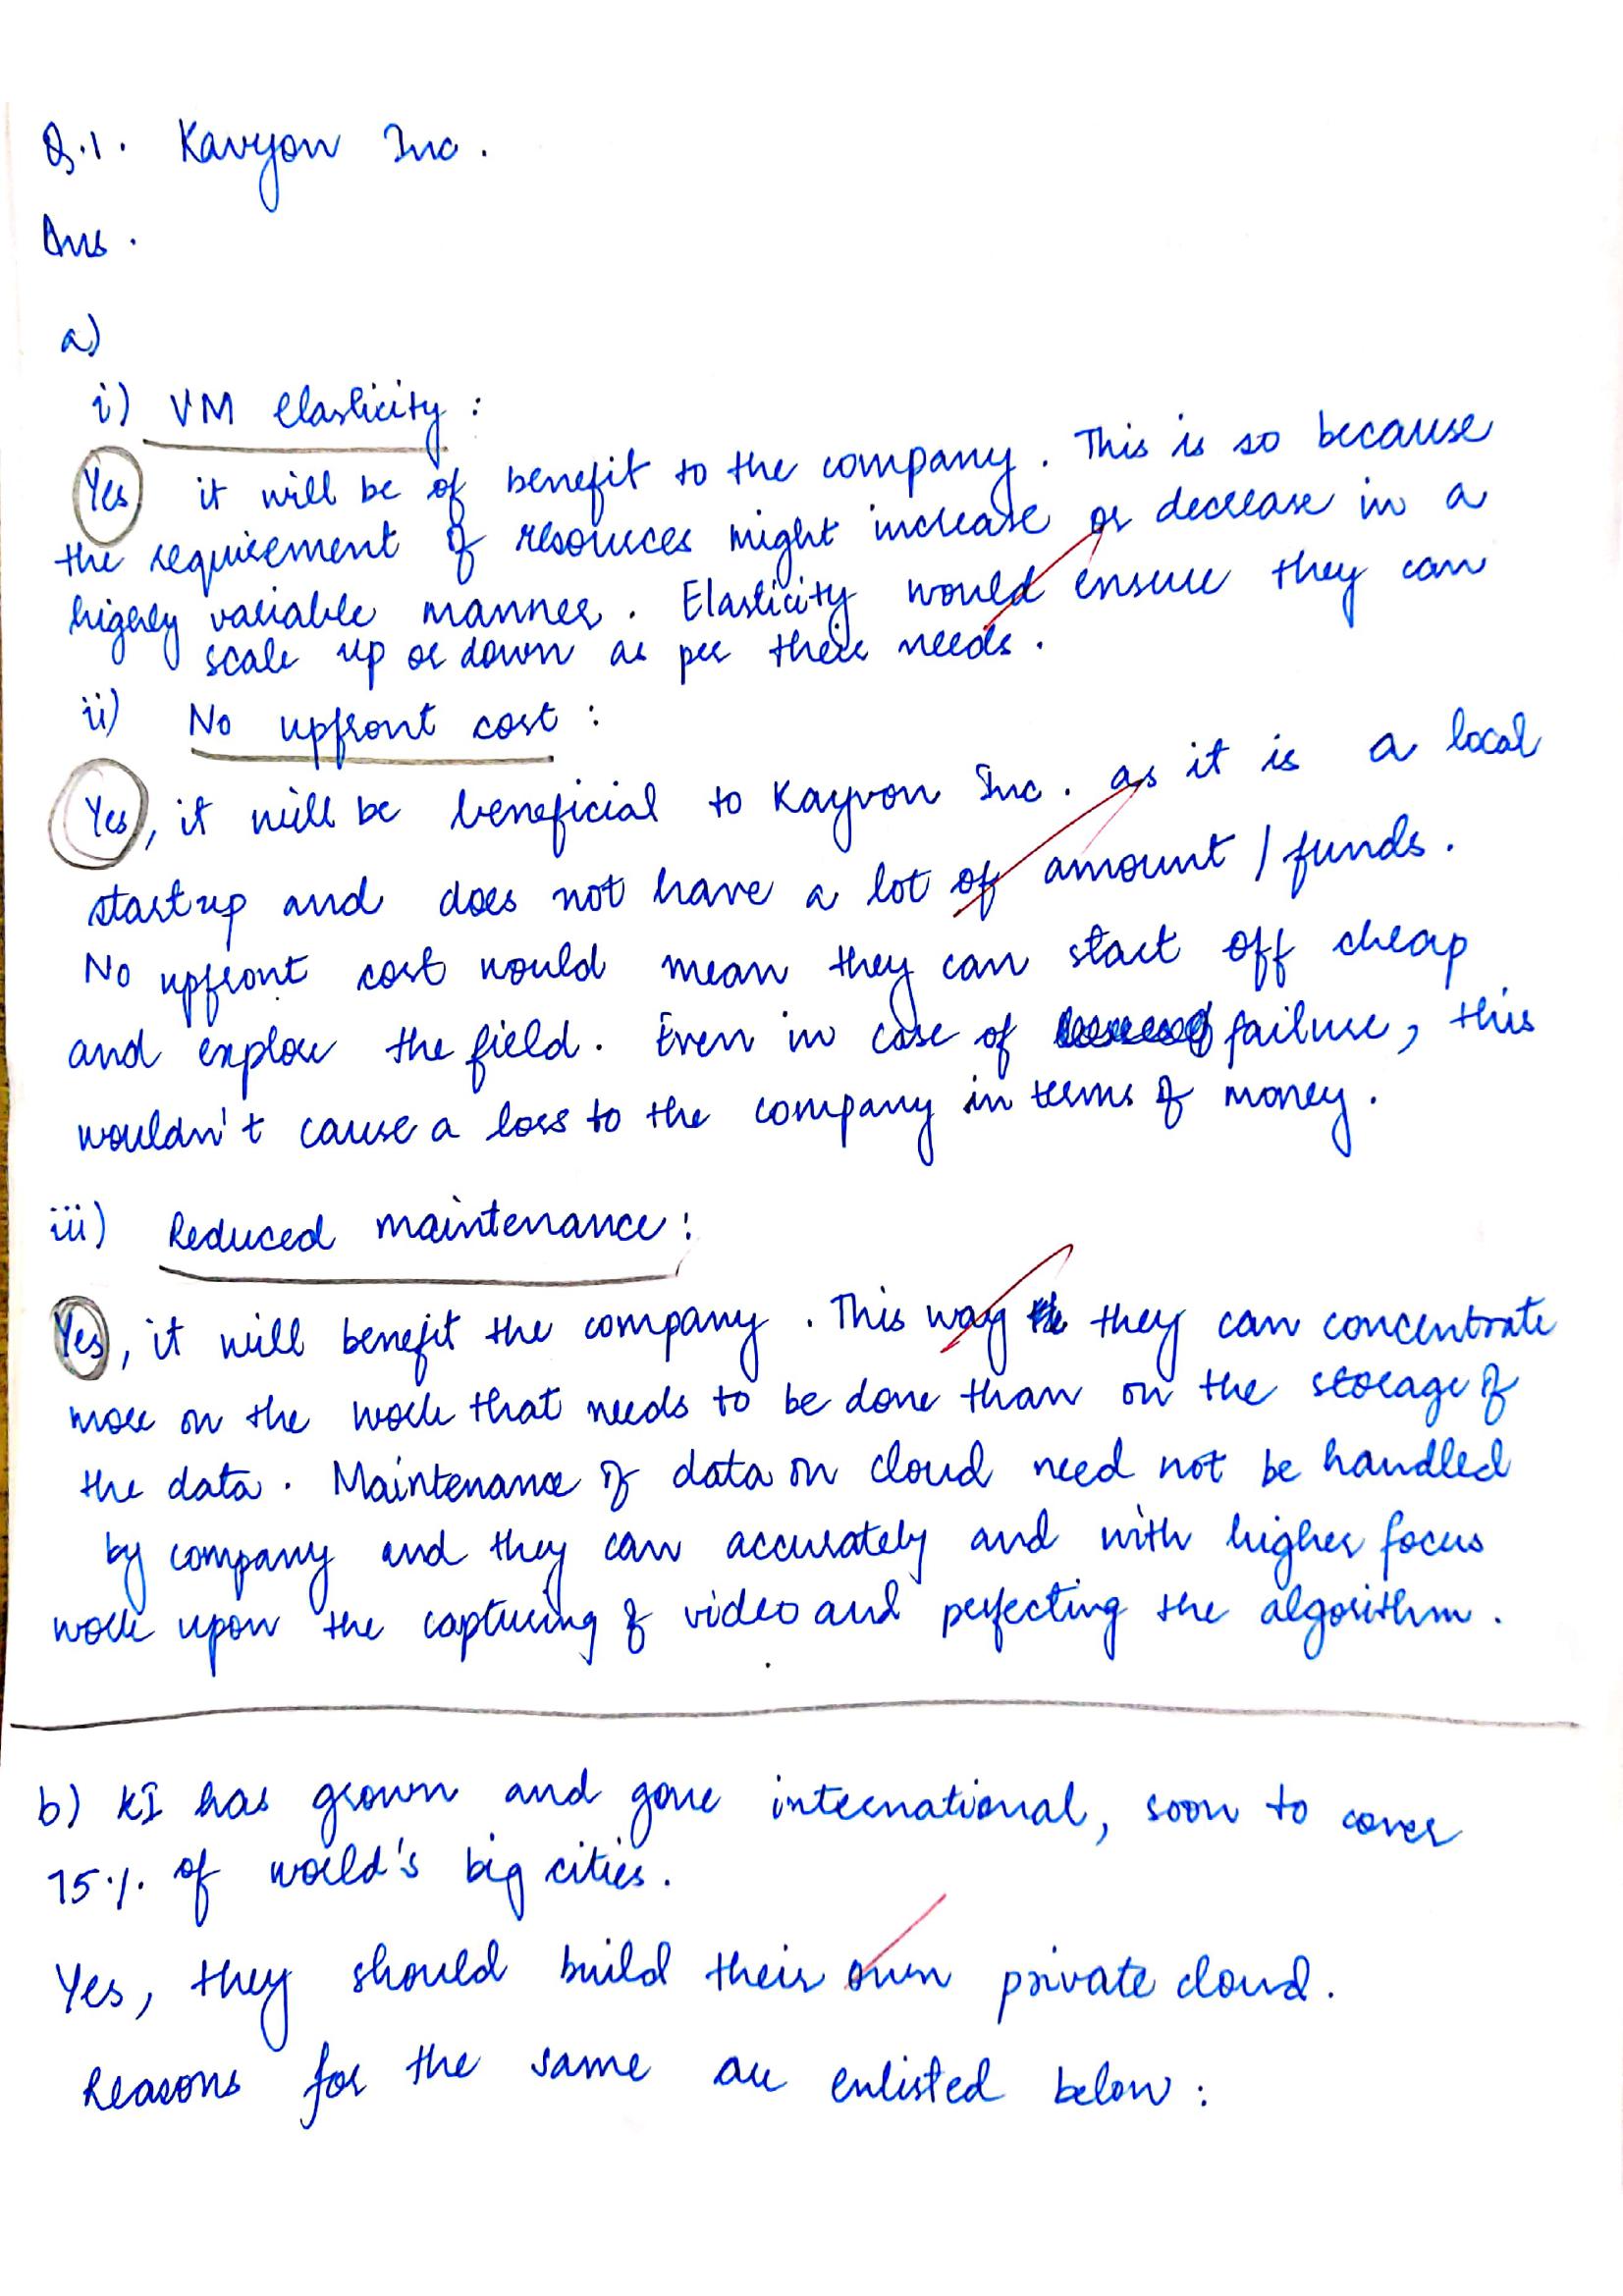 Q.1. Kavyon Inc.
Ans.
a)
i) VM elasticity:
Yes it will be of benefit to the company. This is so because
the requirement of resources might increase or decrease in a
highly variable manner. Elasticity would ensure they can
scale up or down as per their needs.
ii) No upfront cost:
Yes, it will be beneficial to Kayvon Inc. as it is a local
startup and does not have a lot of amount / funds.
No upfront cost would mean they can start off cheap
and explore the field. Even in case of failure, this
wouldn't cause a loss to the company in terms of money.
iii) Reduced maintenance:
Yes, it will benefit the company. This way they can concentrate
more on the work that needs to be done than on the storage of
the data. Maintenance of data on cloud need not be handled
by company and they can accurately and with higher focus
work upon the capturing of video and perfecting the algorithm.
b) KI has grown and gone international, soon to cover
75% of world's big cities.
Yes, they should build their own private cloud.
Reasons for the same are enlisted below: